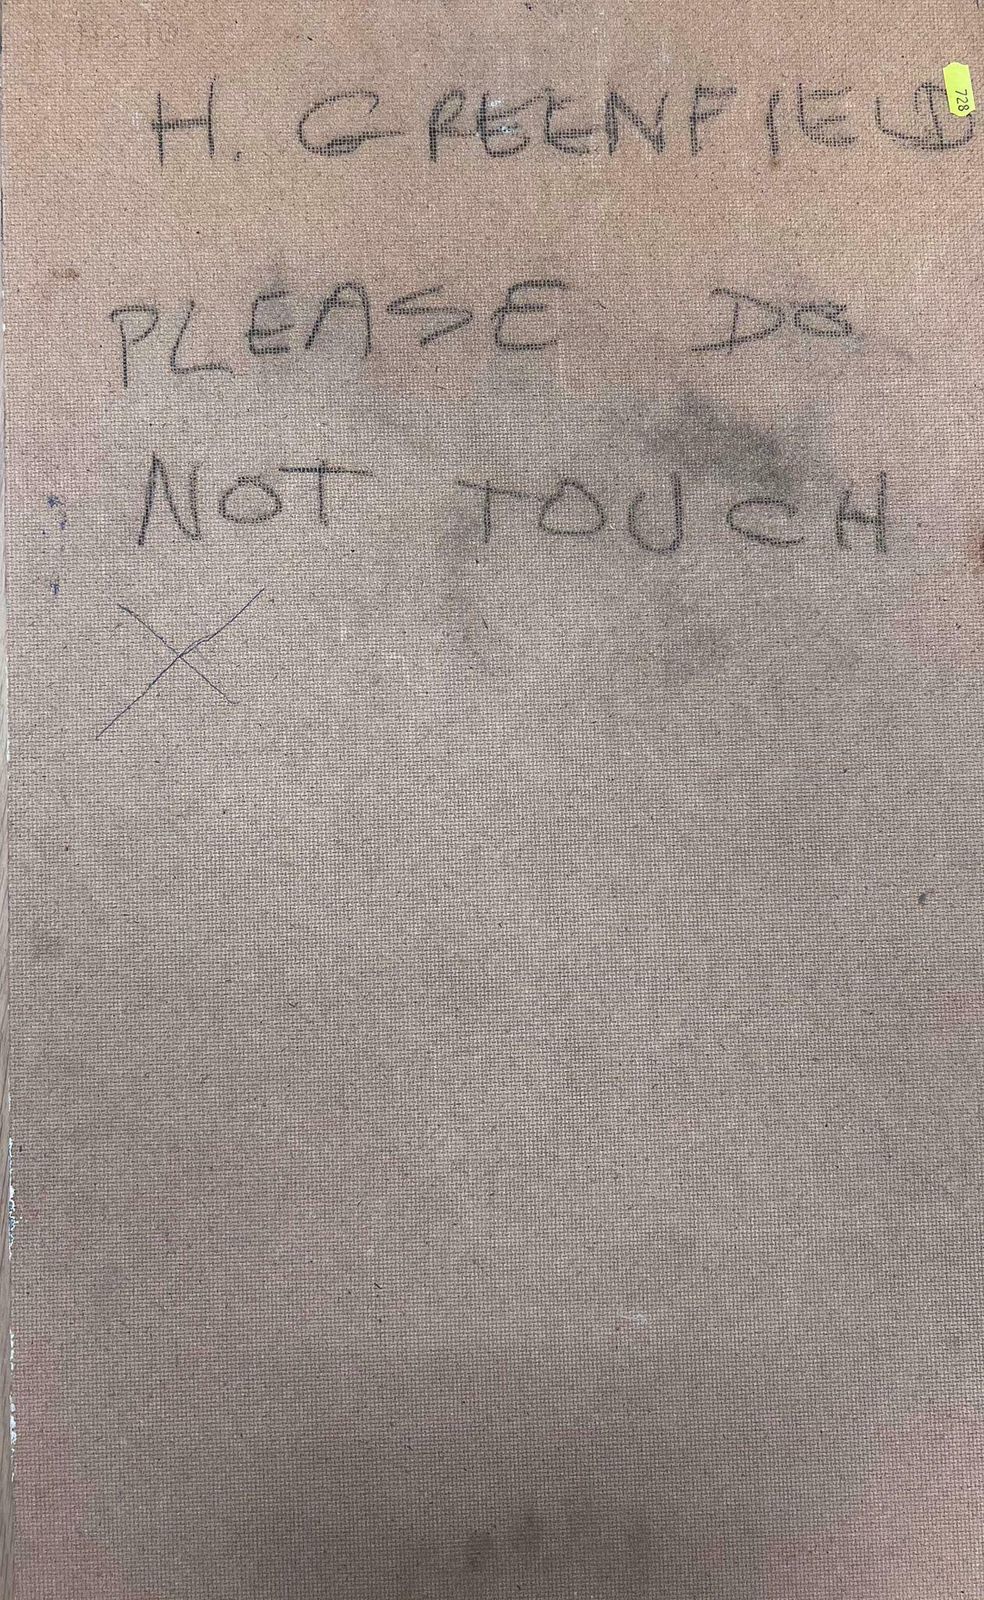 H. GREENFIELD
728
PLEASE DO
NOT TOUCH